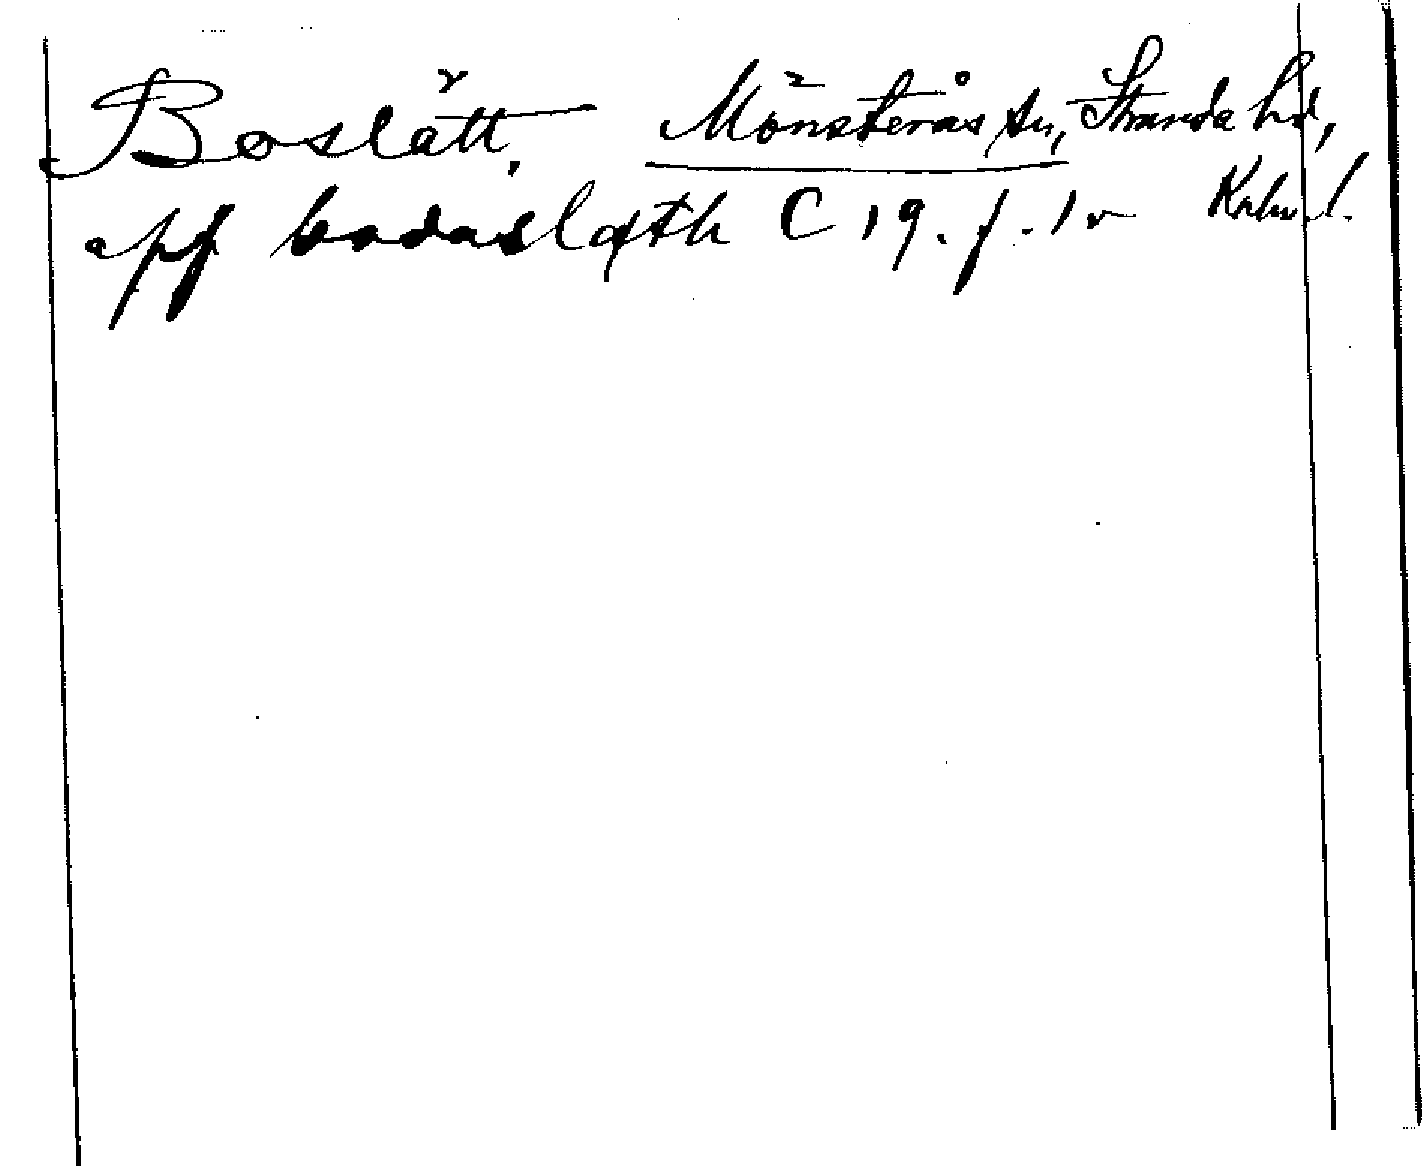 Boslätt, Mönsterås sn, Stranda hd,
Kalm. l.
aff bodaslæth C 19. f. 1 v